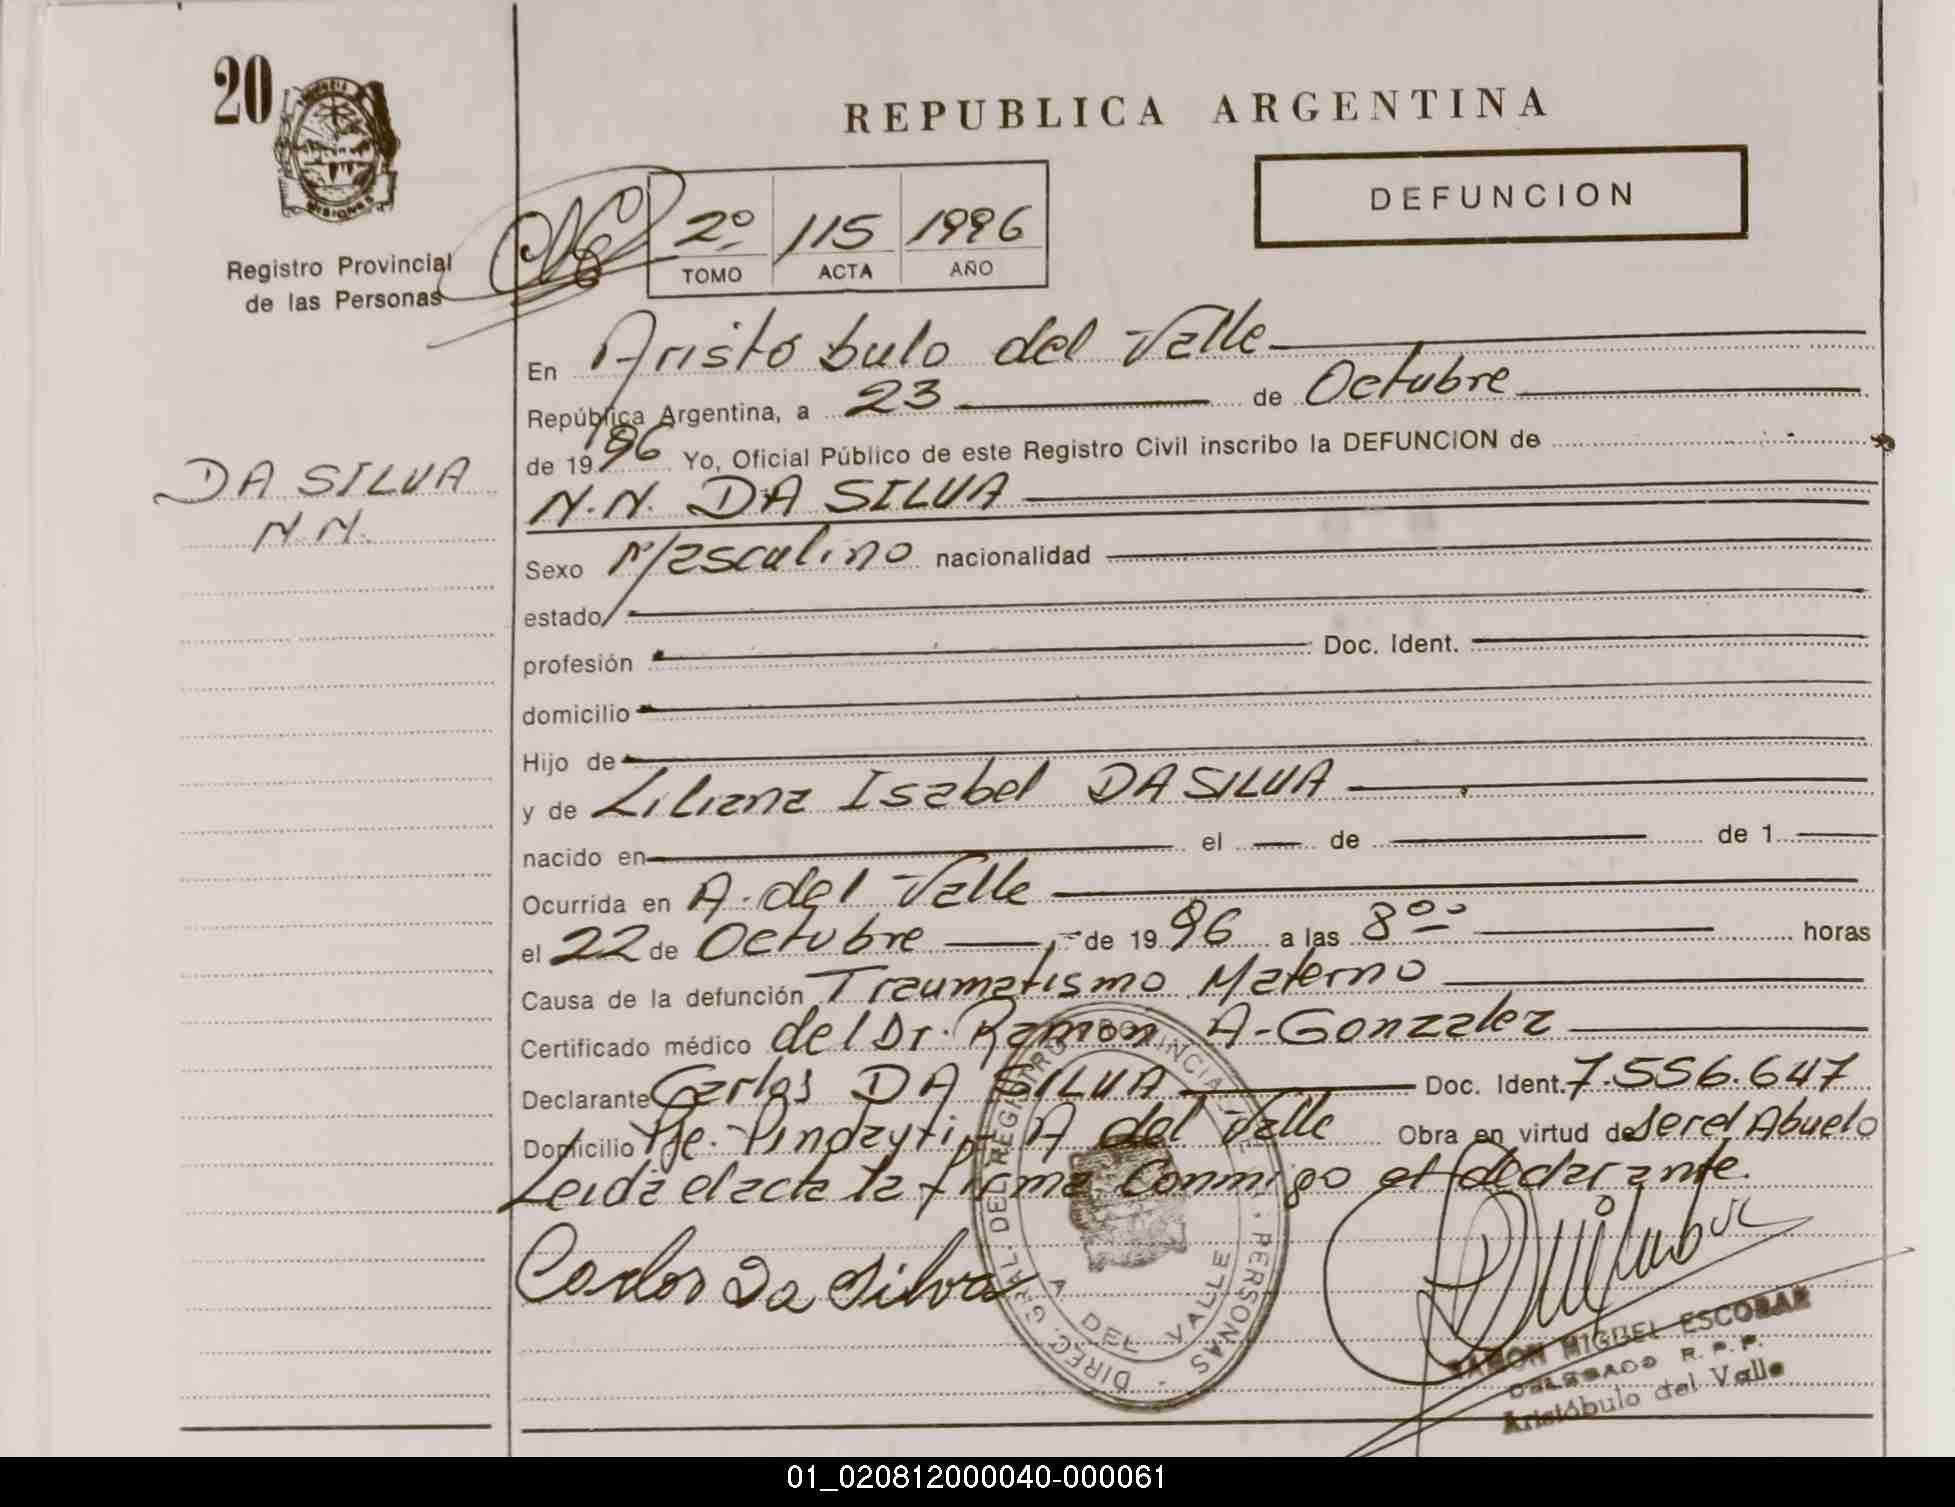 20
MISIONES
Registro Provincial
de las Personas
REPUBLICA ARGENTINA
DEFUNCION
2º 115 1996
TOMO ACTA AÑO
DA SILVA
N.N.
En Aristóbulo del Valle
República Argentina, a 23 de Octubre
de 1996 Yo, Oficial Público de este Registro Civil inscribo la DEFUNCION de
N.N. DA SILVA
Sexo Masculino nacionalidad
estado
profesión Doc. Ident.
domicilio
Hijo de
y de Liliana Isabel DA SILVA
nacido en el de de 1
Ocurrida en A. del Valle
el 22 de Octubre de 1996 a las 8⁰⁰ horas
Causa de la defunción Traumatismo Materno
Certificado médico del Dr. Ramon A. Gonzalez
Declarante Carlos DA SILVA Doc. Ident. 7.556.647
Domicilio Pje. Pindayti A del Valle Obra en virtud de ser el Abuelo
Leida el acta la firma Conmigo el declarante.
Carlos Da Silva
DIREC. GRAL. DEL REGISTRO PROVINCIAL DE PERSONAS
A. DEL VALLE
RAMON MIGUEL ESCOBAR
DELEGADO R. P. P.
Aristóbulo del Valle
01_020812000040-000061